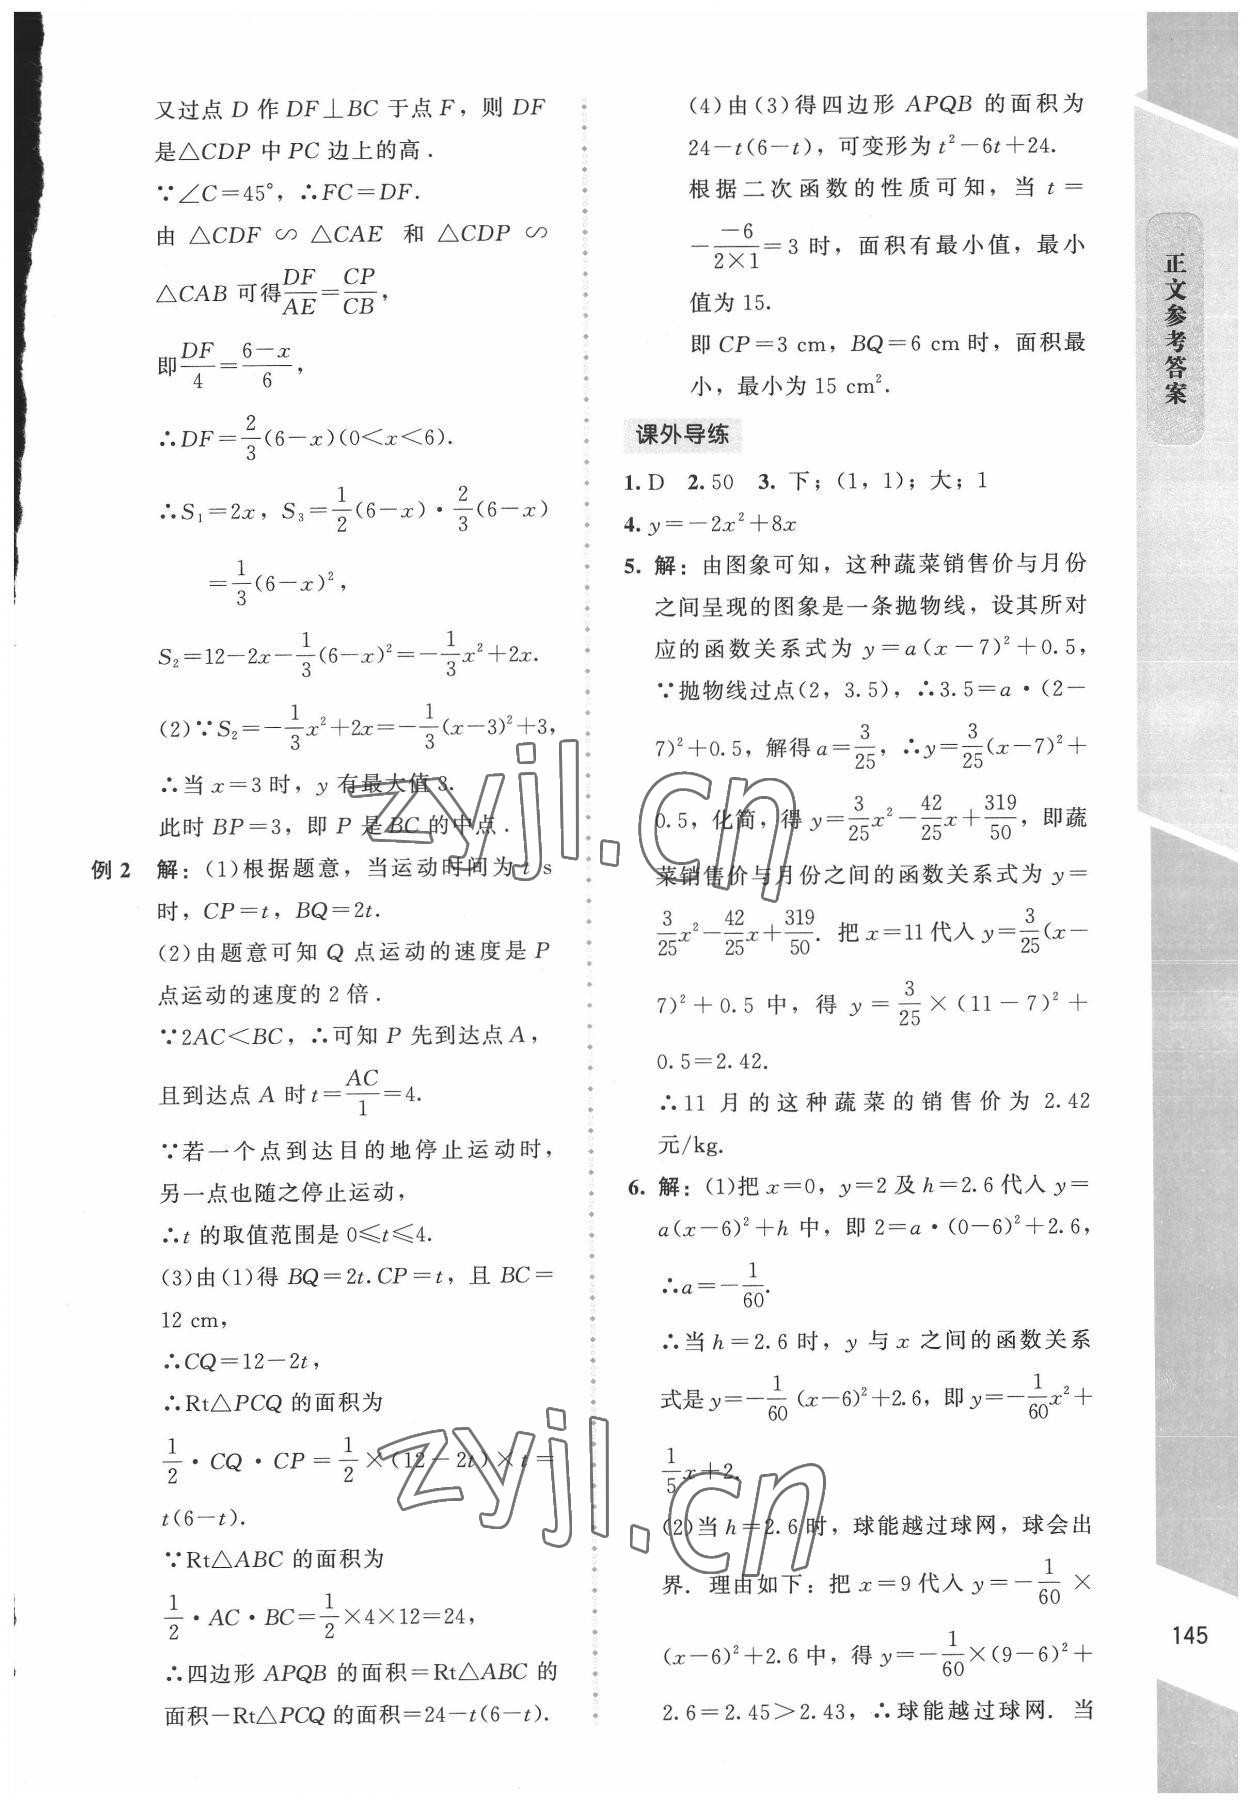 又过点 D 作 DF⊥BC 于点 F，则 DF
是△CDP 中 PC 边上的高．
∵∠C=45°，∴FC=DF.
由 △CDF ∽ △CAE 和 △CDP ∽
△CAB 可得DF/AE=CP/CB，
即DF/4=(6-x)/6，
∴DF=2/3(6-x)(0<x<6).
∴S₁=2x，S₃=1/2(6-x)·2/3(6-x)
=1/3(6-x)²，
S₂=12-2x-1/3(6-x)²=-1/3x²+2x.
(2)∵S₂=-1/3x²+2x=-1/3(x-3)²+3，
∴当 x=3 时，y 有最大值 3.
此时 BP=3，即 P 是 BC 的中点．
例 2 解：(1)根据题意，当运动时间为 t s
时，CP=t，BQ=2t.
(2)由题意可知 Q 点运动的速度是 P
点运动的速度的 2 倍．
∵2AC<BC，∴可知 P 先到达点 A，
且到达点 A 时 t=AC/1=4.
∵若一个点到达目的地停止运动时，
另一点也随之停止运动，
∴t 的取值范围是 0≤t≤4.
(3)由(1)得 BQ=2t.CP=t，且 BC=
12 cm，
∴CQ=12-2t，
∴Rt△PCQ 的面积为
1/2·CQ·CP=1/2×(12-2t)×t=
t(6-t).
∵Rt△ABC 的面积为
1/2·AC·BC=1/2×4×12=24，
∴四边形 APQB 的面积=Rt△ABC 的
面积-Rt△PCQ 的面积=24-t(6-t).
(4)由(3)得四边形 APQB 的面积为
24-t(6-t)，可变形为 t²-6t+24.
根据二次函数的性质可知，当 t=
-(-6)/(2×1)=3 时，面积有最小值，最小
值为 15.
即 CP=3 cm，BQ=6 cm 时，面积最
小，最小为 15 cm².
课外导练
1. D 2. 50 3. 下；(1，1)；大；1
4. y=-2x²+8x
5. 解：由图象可知，这种蔬菜销售价与月份
之间呈现的图象是一条抛物线，设其所对
应的函数关系式为 y=a(x-7)²+0.5，
∵抛物线过点(2，3.5)，∴3.5=a·(2-
7)²+0.5，解得a=3/25，∴y=3/25(x-7)²+
0.5，化简，得 y=3/25x²-42/25x+319/50，即蔬
菜销售价与月份之间的函数关系式为 y=
3/25x²-42/25x+319/50. 把 x=11代入 y=3/25(x-
7)²+0.5 中，得 y=3/25×(11-7)²+
0.5=2.42.
∴11 月的这种蔬菜的销售价为 2.42
元/kg.
6. 解：(1)把 x=0，y=2 及 h=2.6代入 y=
a(x-6)²+h 中，即 2=a·(0-6)²+2.6，
∴a=-1/60.
∴当 h=2.6 时，y 与 x 之间的函数关系
式是 y=-1/60(x-6)²+2.6，即 y=-1/60x²+
1/5x+2.
(2)当 h=2.6时，球能越过球网，球会出
界．理由如下：把 x=9代入 y=-1/60×
(x-6)²+2.6 中，得 y=-1/60×(9-6)²+
2.6=2.45>2.43，∴球能越过球网．当
正文参考答案
145
zyjl.cn
zyjl.cn